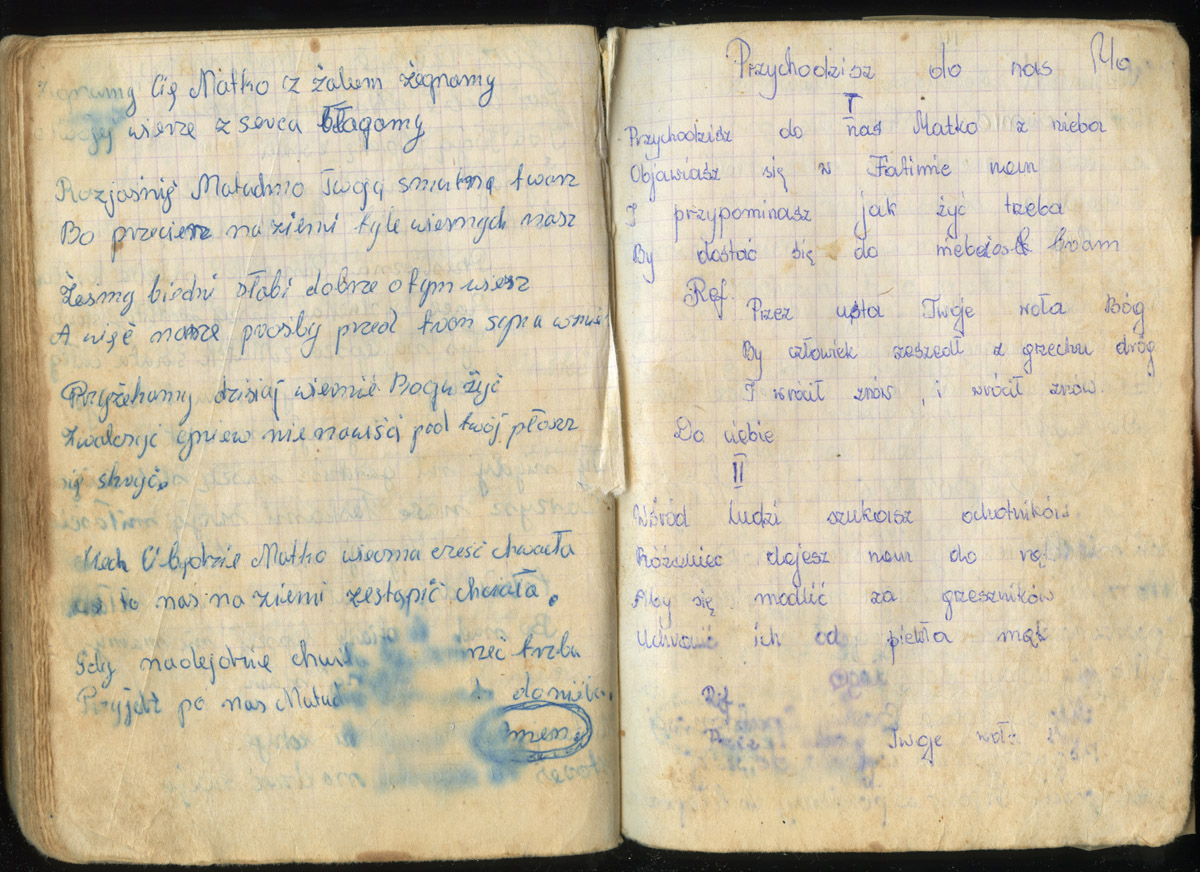 Cię Matko z żalem żegnamy
wierze z serca błagamy
Rozjaśnij Matuchno Twoją smutną twarz
Bo przecierz na ziemi tyle wiernych masz
Żeśmy biedni słabi dobrze o tym wiesz
A więc nasze prośby przed tron syna
Przyżekamy dzisiaj wiernie Bogu żyć
Zwalczyć gniew nienawiść pod twój płaszcz
się skryć.
Niech Ci będzie Matko wieczna cześć chwała
do nas na ziemi zestąpić chciała.
Gdy nadejdzie trzba
Przyjdź po nas
Przychodzisz do nas Ma
I
Przychodzisz do nas Matko z nieba
Objawiasz się w Fatimie nam
I przypominasz jak żyć trzeba
By dostać się do bram
Ref.
Przez usta Twoje woła Bóg
By człowiek zeszedł z grzechu dróg
I wrócił znów, i wrócił znów
Do ciebie
II
Wśród ludzi szukasz ochotników
Różaniec dajesz nam do rąk
Aby się modlić za grzeszników
Uchronić ich od piekła mąk
Ref
Twoje